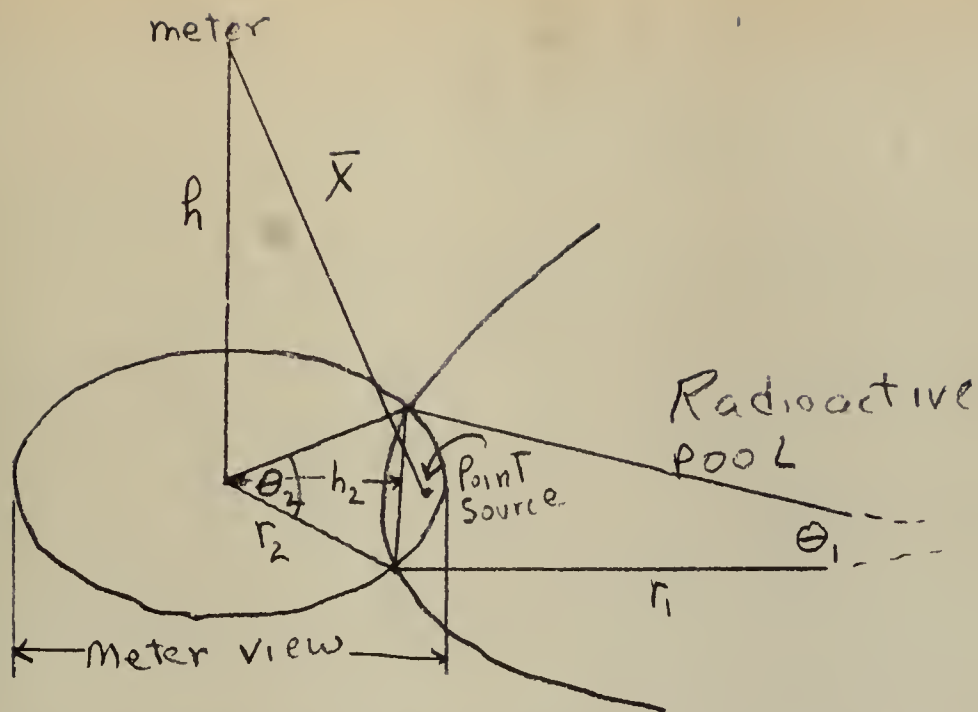 meter
X̄
h
Radioactive
POOL
Point
Source
θ₂
h₂
r₂
θ₁
r₁
meter view